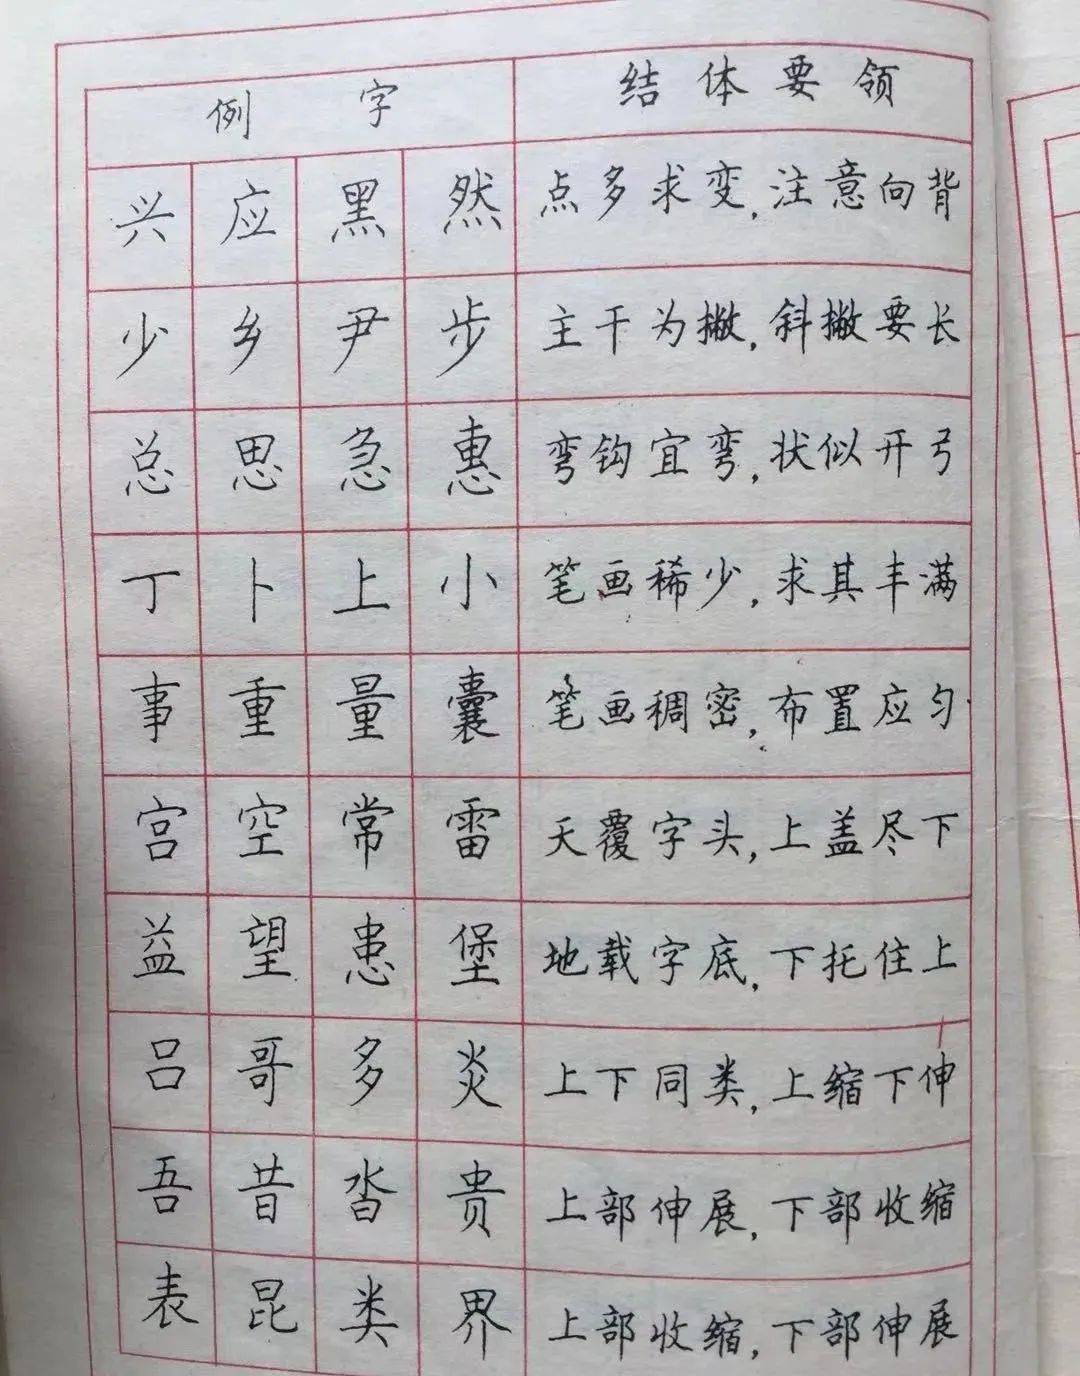 例 字 结体要领
兴 应 黑 然 点多求变,注意向背
少 乡 尹 步 主干为撇,斜撇要长
总 思 急 惠 弯钩宜弯,状似开弓
丁 卜 上 小 笔画稀少,求其丰满
事 重 量 囊 笔画稠密,布置应匀
宫 空 常 雷 天覆字头,上盖尽下
益 望 患 堡 地载字底,下托住上
吕 哥 多 炎 上下同类,上缩下伸
吾 昔 沓 贵 上部伸展,下部收缩
表 昆 类 界 上部收缩,下部伸展